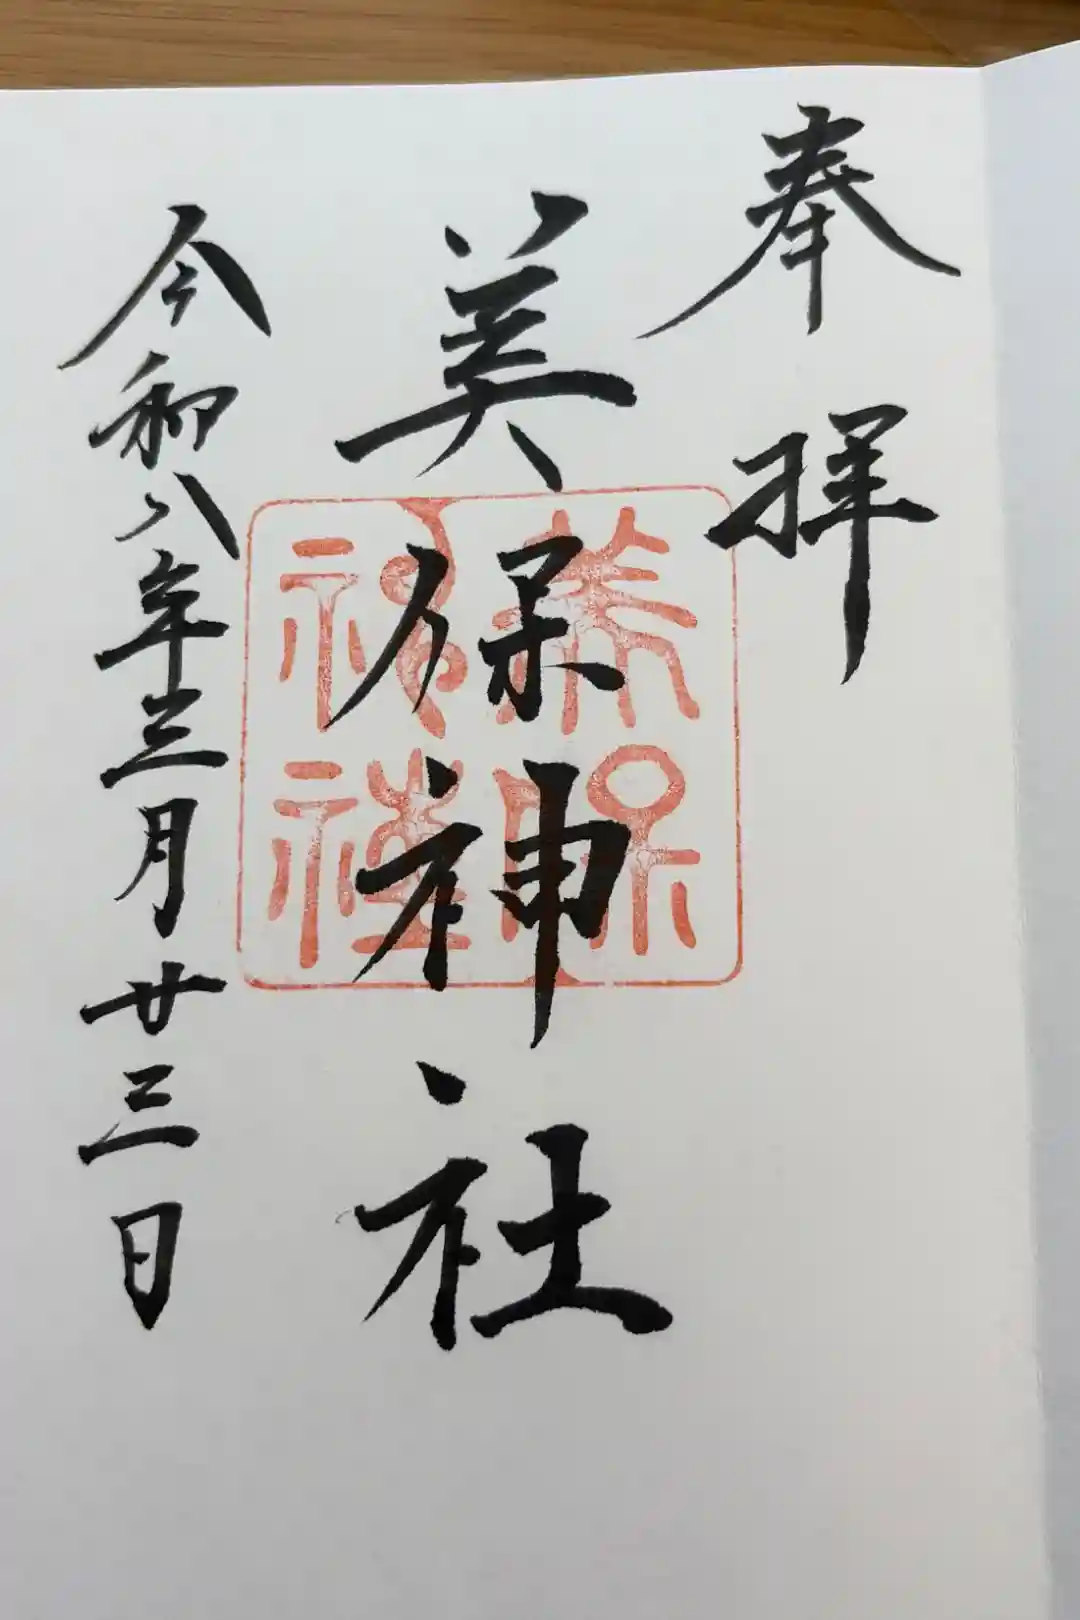 奉拝
美保神社
令和八年三月廿三日
美保神社